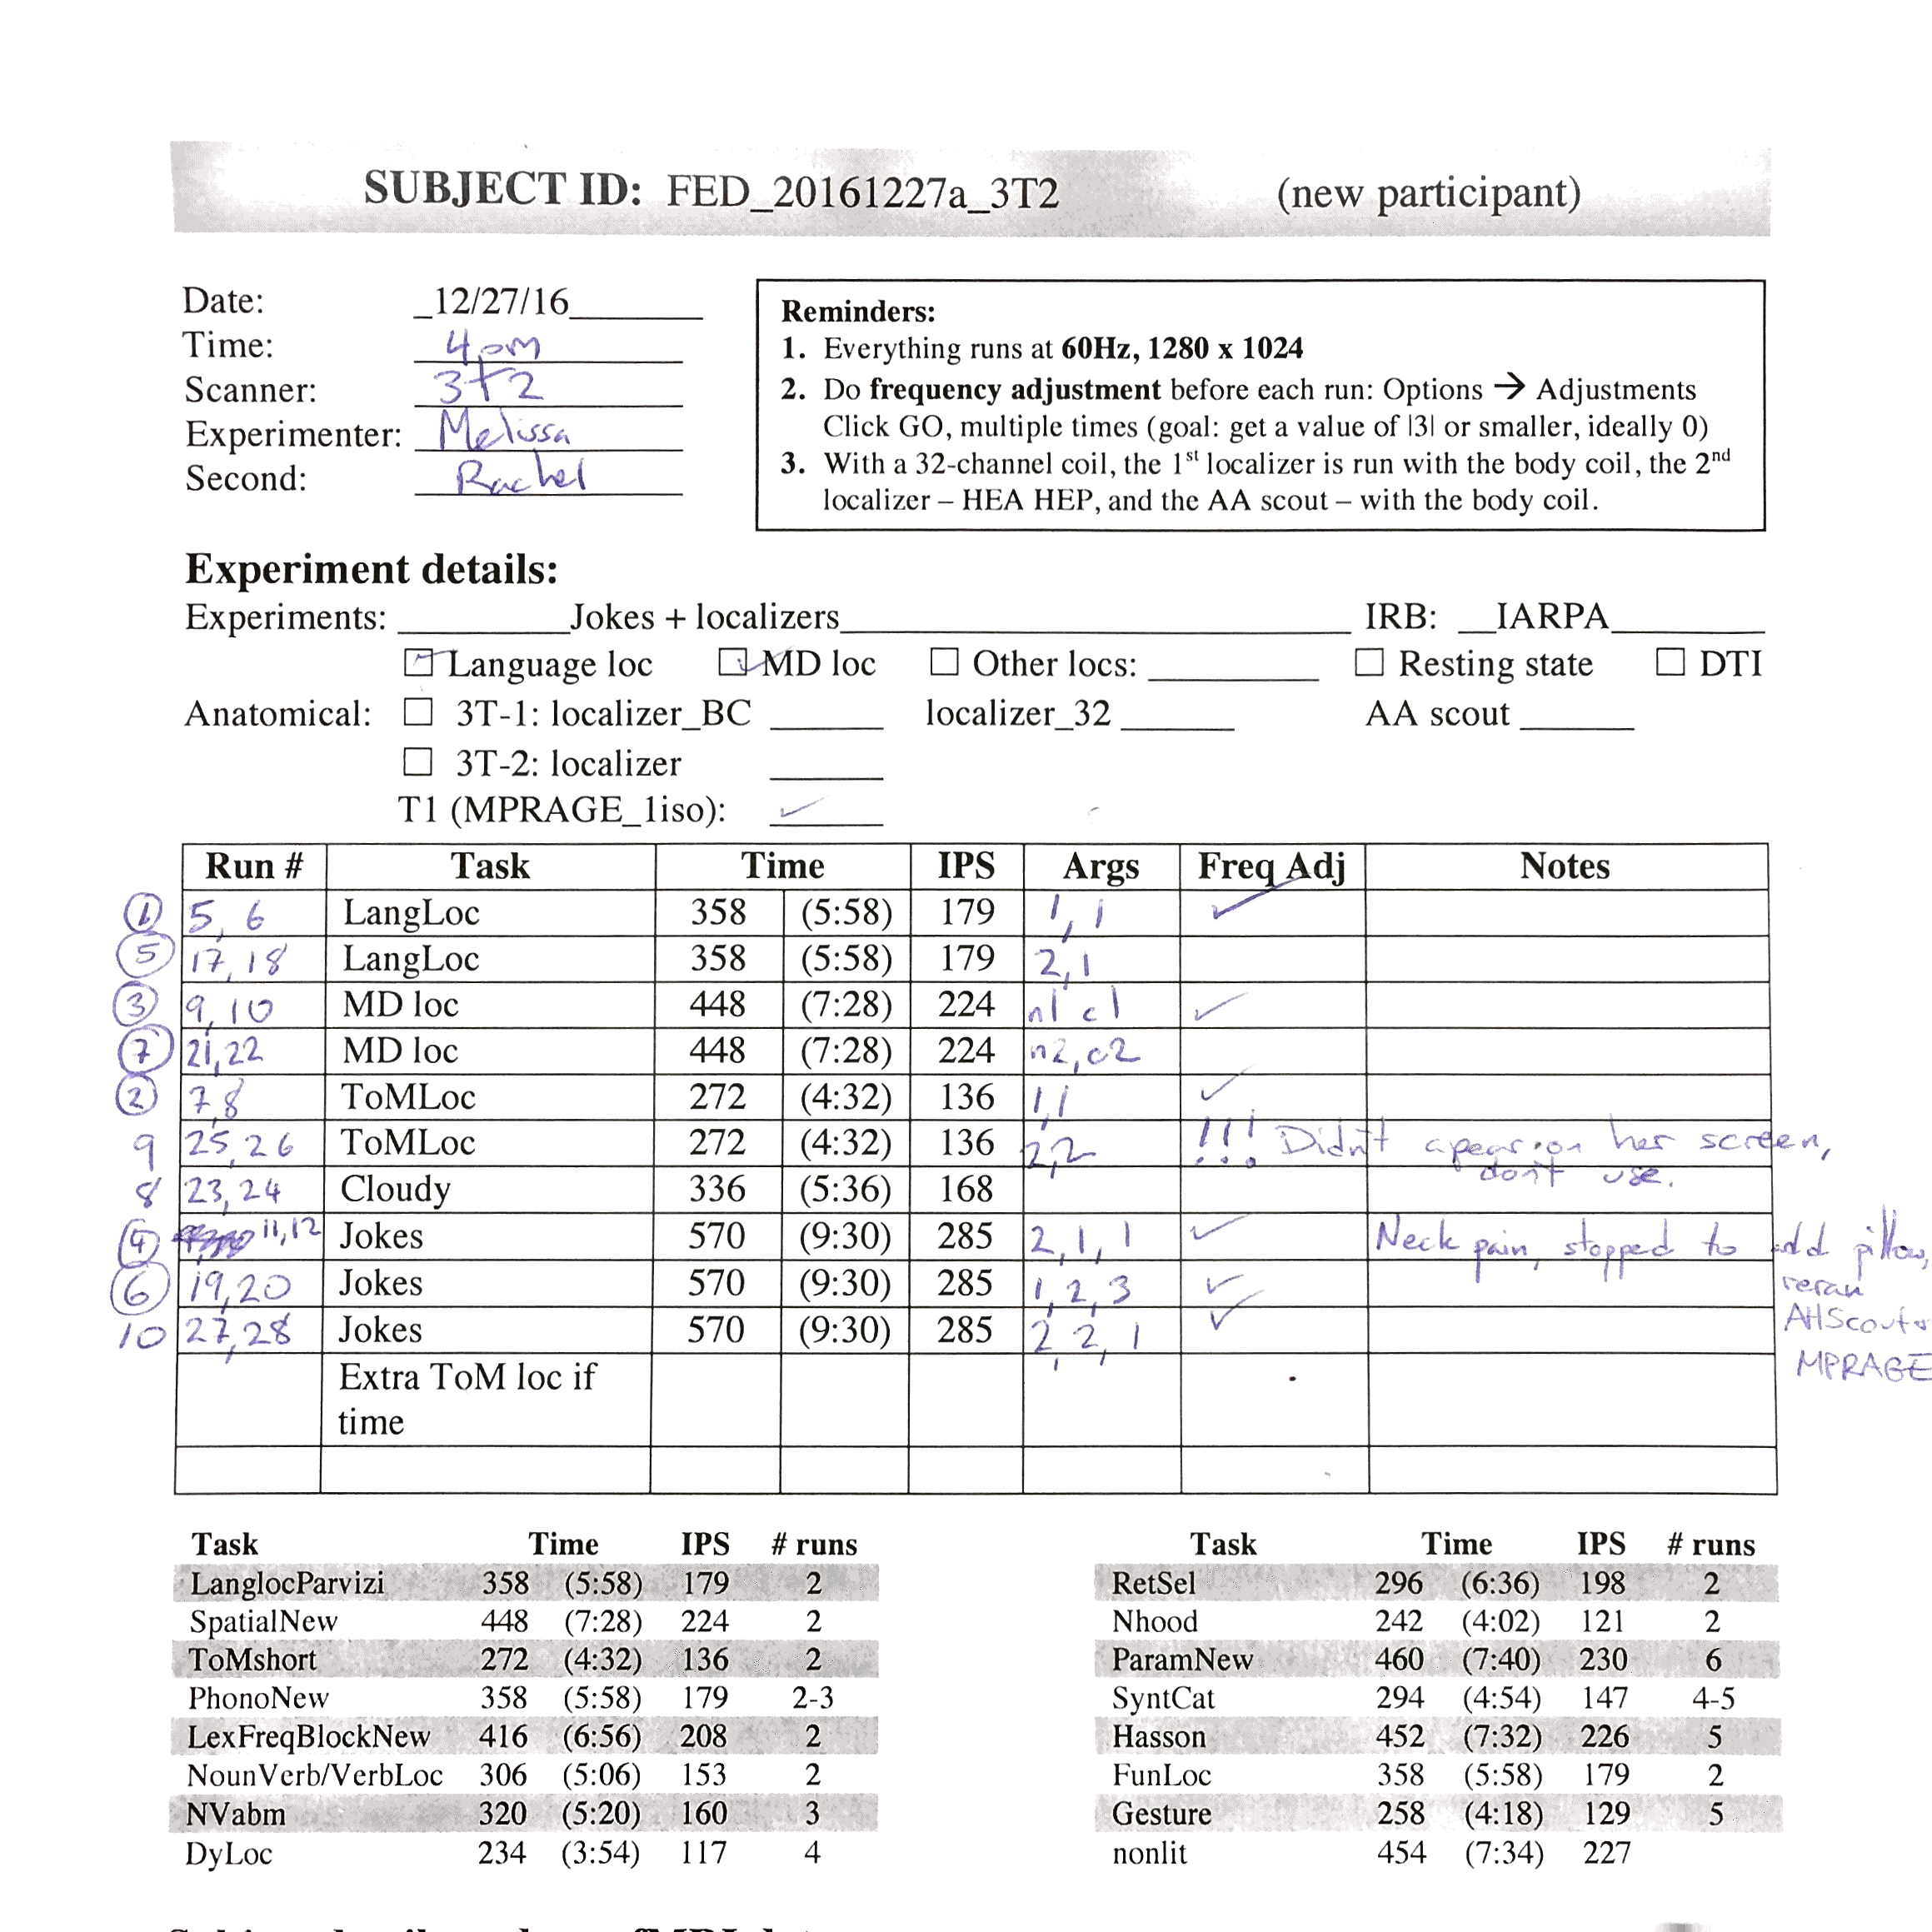 SUBJECT ID: FED_20161227a_3T2 (new participant)
Date: _12/27/16_______
Time: 4pm
Scanner: 3T2
Experimenter: Melissa
Second: Rachel
Reminders:
1. Everything runs at 60Hz, 1280 x 1024
2. Do frequency adjustment before each run: Options → Adjustments
Click GO, multiple times (goal: get a value of |3| or smaller, ideally 0)
3. With a 32-channel coil, the 1st localizer is run with the body coil, the 2nd
localizer – HEA HEP, and the AA scout – with the body coil.
Experiment details:
Experiments: ________Jokes + localizers________ IRB: __IARPA________
☑ Language loc ☑ MD loc ☐ Other locs: ________ ☐ Resting state ☐ DTI
Anatomical: ☐ 3T-1: localizer_BC ______ localizer_32 ______ AA scout ______
☐ 3T-2: localizer ______
T1 (MPRAGE_1iso): ✓
Run # Task Time IPS Args Freq Adj Notes
① 5, 6 LangLoc 358 (5:58) 179 1, 1 ✓
⑤ 17, 18 LangLoc 358 (5:58) 179 2, 1
③ 9, 10 MD loc 448 (7:28) 224 n1 c1 ✓
⑦ 21,22 MD loc 448 (7:28) 224 n2, c2
② 7,8 ToMLoc 272 (4:32) 136 1,1 ✓
9 25,26 ToMLoc 272 (4:32) 136 2,2 !!! Didn't apear on her screen,
don't use.
8 23,24 Cloudy 336 (5:36) 168
④ 11,12 Jokes 570 (9:30) 285 2, 1, 1 ✓ Neck pain, stopped to add pillow,
⑥ 19,20 Jokes 570 (9:30) 285 1, 2, 3 ✓ reran
10 27,28 Jokes 570 (9:30) 285 2, 2, 1 ✓ AHScout+
MPRAGE
Extra ToM loc if
time
Task Time IPS # runs
LanglocParvizi 358 (5:58) 179 2
SpatialNew 448 (7:28) 224 2
ToMshort 272 (4:32) 136 2
PhonoNew 358 (5:58) 179 2-3
LexFreqBlockNew 416 (6:56) 208 2
NounVerb/VerbLoc 306 (5:06) 153 2
NVabm 320 (5:20) 160 3
DyLoc 234 (3:54) 117 4
Task Time IPS # runs
RetSel 296 (6:36) 198 2
Nhood 242 (4:02) 121 2
ParamNew 460 (7:40) 230 6
SyntCat 294 (4:54) 147 4-5
Hasson 452 (7:32) 226 5
FunLoc 358 (5:58) 179 2
Gesture 258 (4:18) 129 5
nonlit 454 (7:34) 227